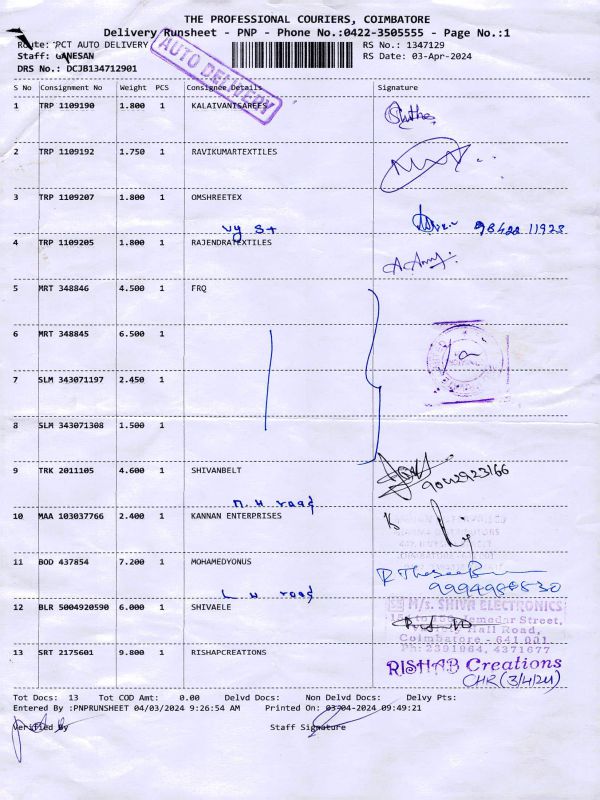 THE PROFESSIONAL COURIERS, COIMBATORE
Delivery Runsheet - PNP - Phone No.:0422-3505555 - Page No.:1
Route: PCT AUTO DELIVERY RS No.: 1347129
Staff: GANESAN RS Date: 03-Apr-2024
DRS No.: DCJB134712901
AUTO DELIVERY
S No Consignment No Weight PCS Consignee Details Signature
1 TRP 1109190 1.800 1 KALAIVANISAREES
2 TRP 1109192 1.750 1 RAVIKUMARTEXTILES
3 TRP 1109207 1.800 1 OMSHREETEX
vy st
4 TRP 1109205 1.800 1 RAJENDRATEXTILES
5 MRT 348846 4.500 1 FRQ
6 MRT 348845 6.500 1
7 SLM 343071197 2.450 1
8 SLM 343071308 1.500 1
9 TRK 2011105 4.600 1 SHIVANBELT
9042923166
10 MAA 103037766 2.400 1 KANNAN ENTERPRISES
11 BOD 437854 7.200 1 MOHAMEDYONUS
12 BLR 5004920590 6.000 1 SHIVAELE
M/s. SHIVA ELECTRONICS
Hall Road,
Coimbatore - 641 001.
Ph: 2391964, 4371677
13 SRT 2175601 9.800 1 RISHAPCREATIONS
RISHAB Creations
CHR (3/4/24)
Tot Docs: 13 Tot COD Amt: 0.00 Delvd Docs: Non Delvd Docs: Delvy Pts:
Entered By :PNPRUNSHEET 04/03/2024 9:26:54 AM Printed On: 03-04-2024 09:49:21
Verified By Staff Signature